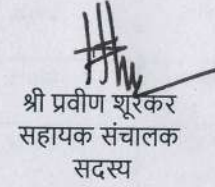 श्री प्रवीण शूरकर
सहायक संचालक
सदस्य